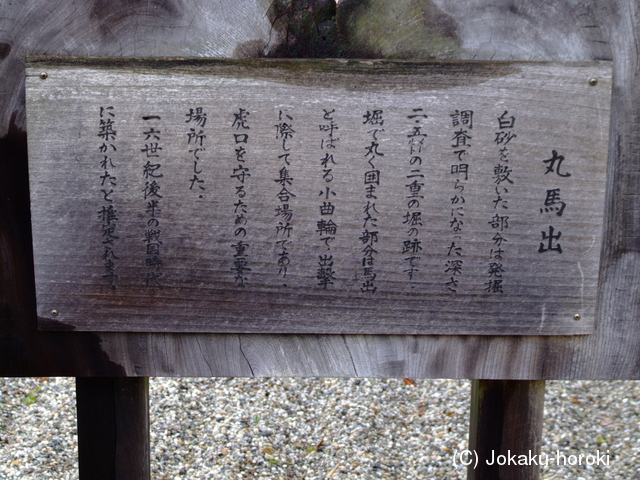 丸馬出
白砂を敷いた部分は発掘
調査で明らかになった深さ
二・五㍍の二重の堀の跡です
堀で丸く囲まれた部分は馬出
と呼ばれる小曲輪で、出撃
に際して集合場所であり、
虎口を守るための重要な
場所でした。
一六世紀後半の戦国時代
に築かれたと推定されます。
(C) Jokaku-horoki